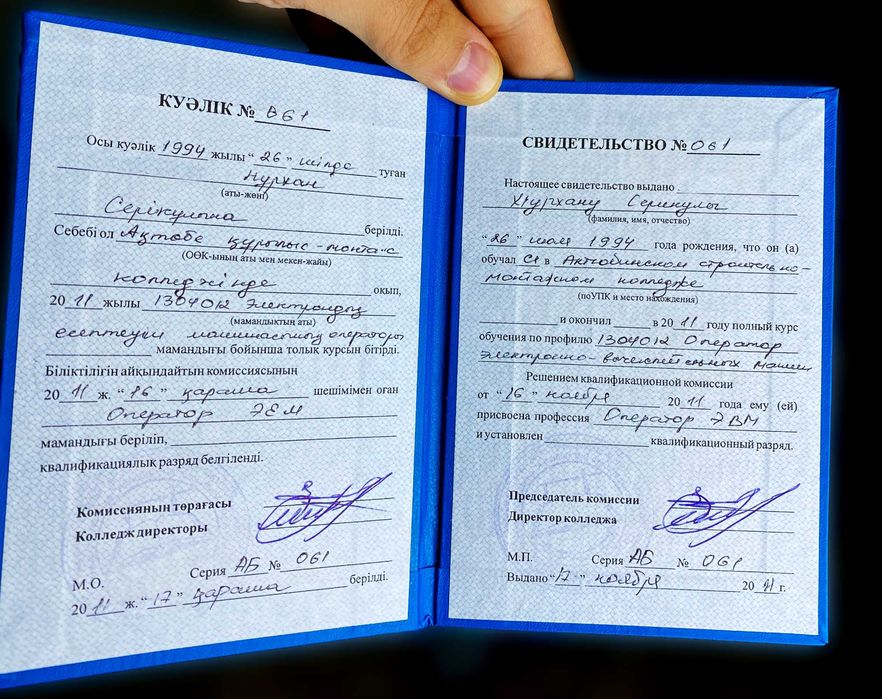 КУӘЛІК № 061
Осы куәлік 1994 жылы "26" шілде туған
Нұрхан
(аты-жөні)
Серікұлына берілді.
Себебі ол Ақтөбе құрылыс-монтаж
(ОӨК-ының аты мен мекен-жайы)
колледжінде оқып,
2011 жылы 1304012 Электрондық
(мамандықтың аты)
есептеуіш машинасының операторы
мамандығы бойынша толық курсын бітірді.
Біліктілігін айқындайтын комиссиясының
2011 ж. "16" қараша шешімімен оған
Оператор ЭЕМ
мамандығы беріліп,
квалификациялық разряд белгіленді.
Комиссияның төрағасы
Колледж директоры
М.О. Серия АБ № 061
2011 ж. "17" қараша берілді.
СВИДЕТЕЛЬСТВО № 061
Настоящее свидетельство выдано
Нурхану Серикулы
(фамилия, имя, отчество)
"26" июля 1994 года рождения, что он (а)
обучалс в Актюбинском строительно-
монтажном колледже
(поУПК и место нахождения)
и окончил в 2011 году полный курс
обучения по профилю 1304012 Оператор
электронно-вычеслительных машин
Решением квалификационной комиссии
от "16" ноября 2011 года ему (ей)
присвоена профессия Оператор ЭВМ
и установлен квалификационный разряд.
Председатель комиссии
Директор колледжа
М.П. Серия АБ № 061
Выдано "17" ноября 2011 г.